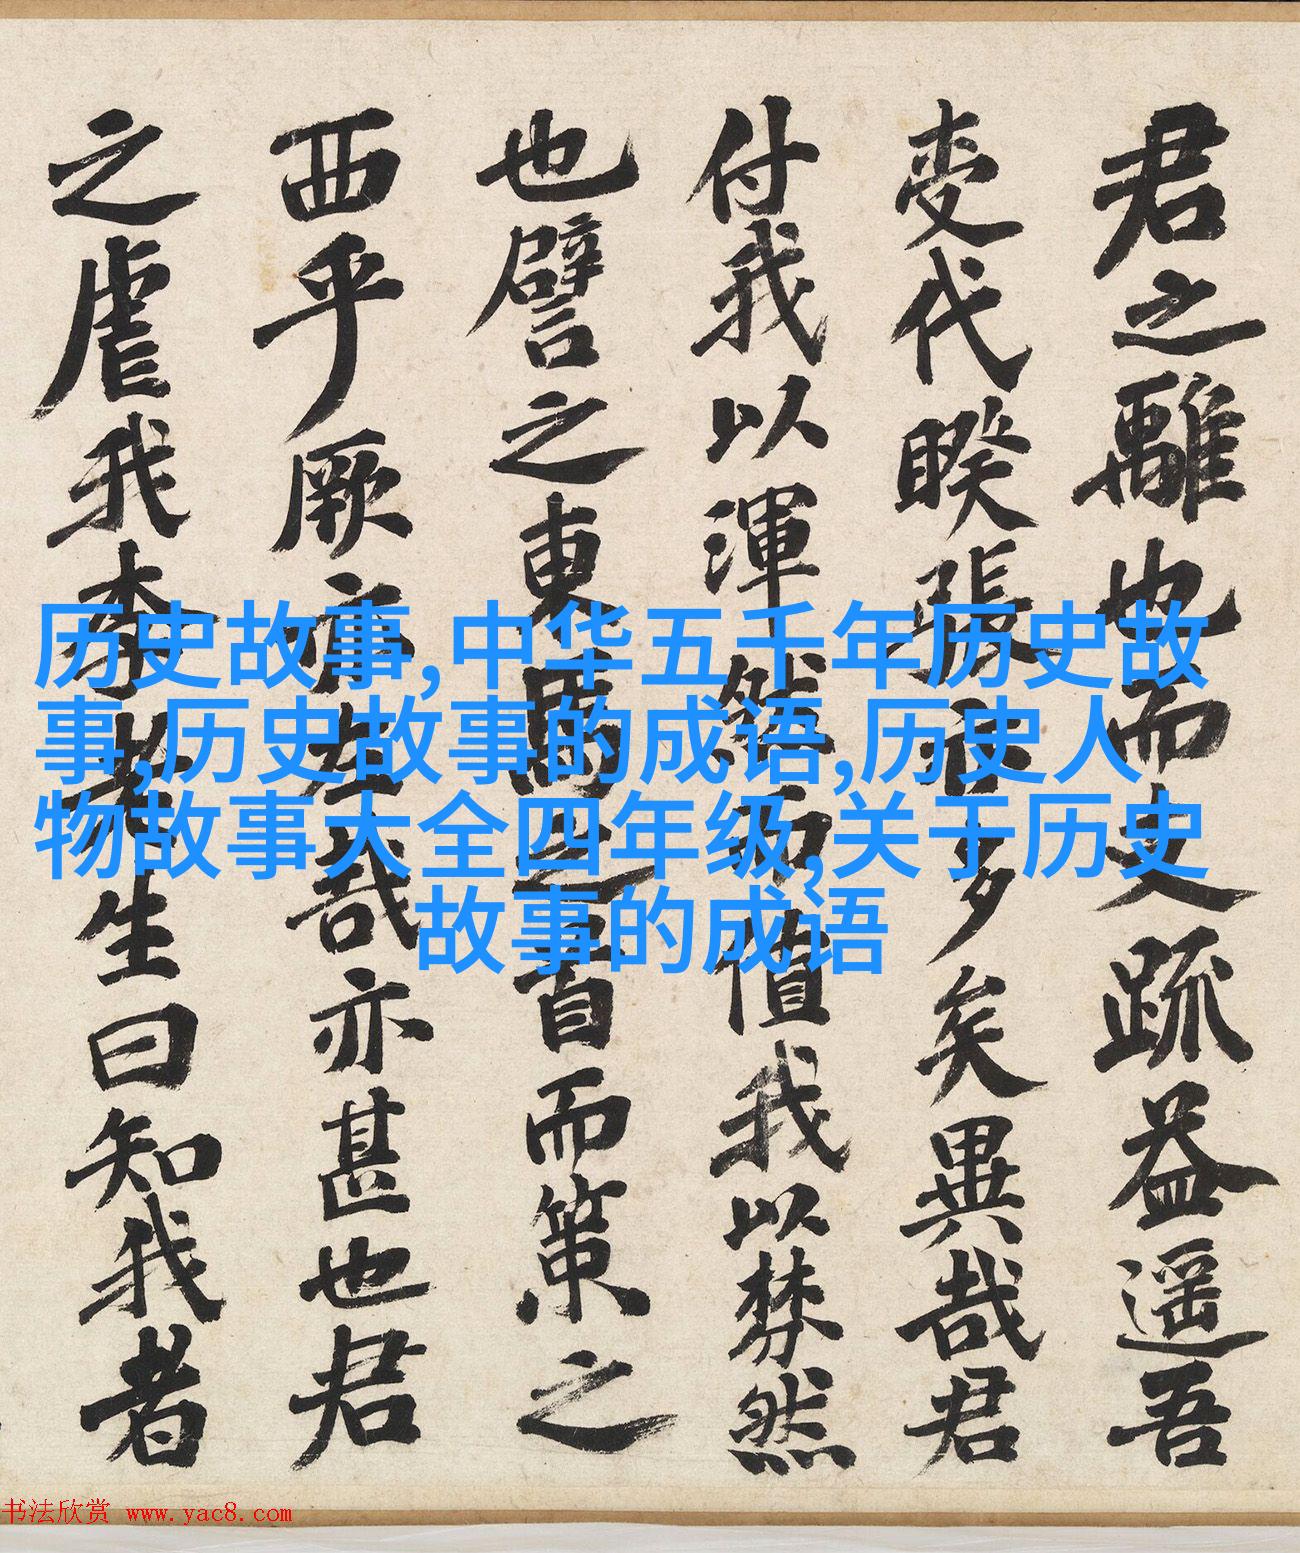 君之離也而文疏益遥吾
代睽張多矣異哉君
付我以渾然而值我以棼然
也譬之東馬之首而策之
西乎厥亦左哉亦甚也君
之虐我生曰知我者
历史故事,中华五千年历史故
事,历史故事的成语,历史人
物故事大全四年级,关于历史
故事的成语
书法欣赏 www.yac8.com